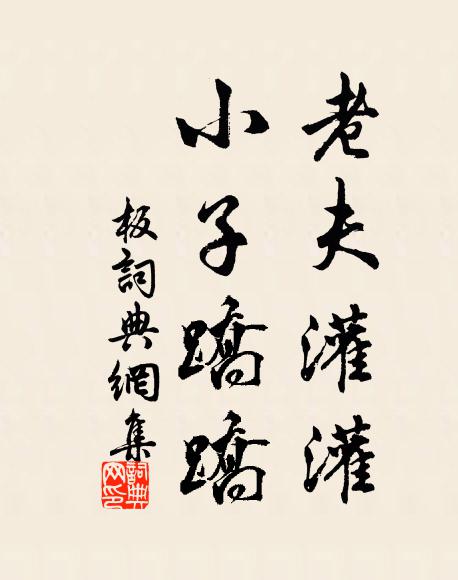 老夫灌灌
小子蹻蹻
板詞典網集
詞典網印